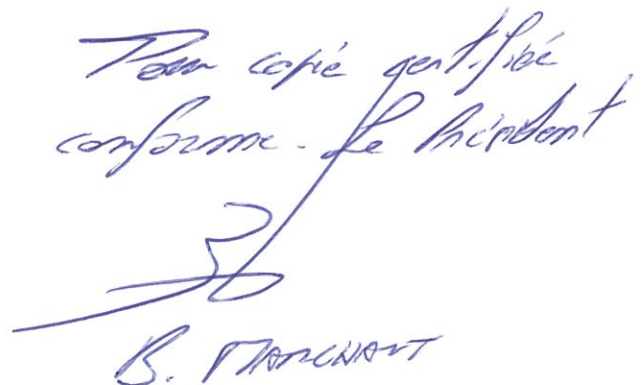 Pour copie certifiée
conforme - Le Président
B. MARCHANT